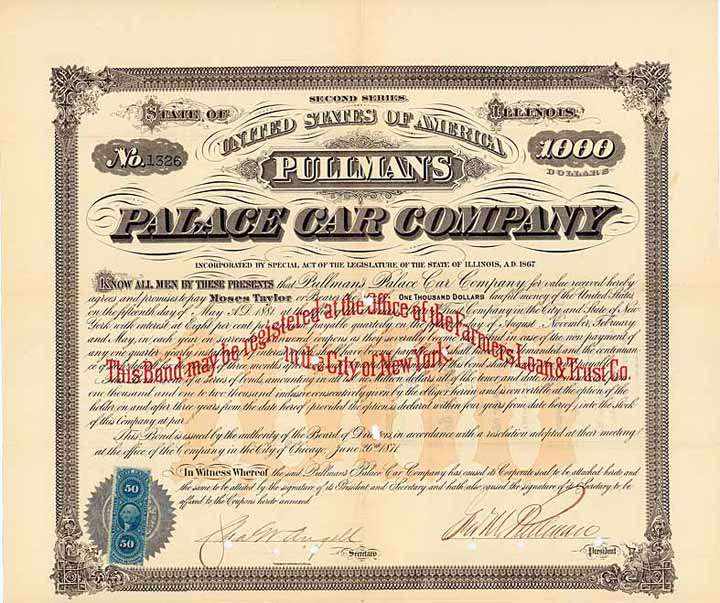 SECOND SERIES.
STATE OF ILLINOIS.
UNITED STATES OF AMERICA
No. 1326 1000
DOLLARS
PULLMAN'S
PALACE CAR COMPANY
INCORPORATED BY SPECIAL ACT OF THE LEGISLATURE OF THE STATE OF ILLINOIS, A.D. 1867
KNOW ALL MEN BY THESE PRESENTS that Pullman's Palace Car Company for value received hereby
agrees and promises to pay Moses Taylor or Bearer ONE THOUSAND DOLLARS lawful money of the United States
on the fifteenth day of May A.D. 1881 Company in the City and State of New
York with interest at Eight per cent payable quarterly on the of August November, February
and May, in each year coupons as they severally case of the non payment of
any one quarter
This Bond may be registered at the Office of the Farmers Loan & Trust Co.
in the City of New York.
of a series of bonds, amounting in all to Million dollars all of like tenor and date,
one thousand and one to two thousand inclusive consecutively given by the obligor herein and is convertible at the option of the
holder, on and after three years from the date hereof provided the option is declared within four years from date hereof, into the stock
of this Company at par.
This Bond is issued by the authority of the Board of Directors, in accordance with a resolution adopted at their meeting
at the office of the Company in the City of Chicago, June 26th 1871
In Witness Whereof the said Pullman's Palace Car Company has caused its Corporate seal to be attached hereto and
the same to be attested by the signature of its President and Secretary and hath also caused the signature of its Secretary to be
affixed to the Coupons hereto annexed
50
50
Secretary
Geo M Pullman
President